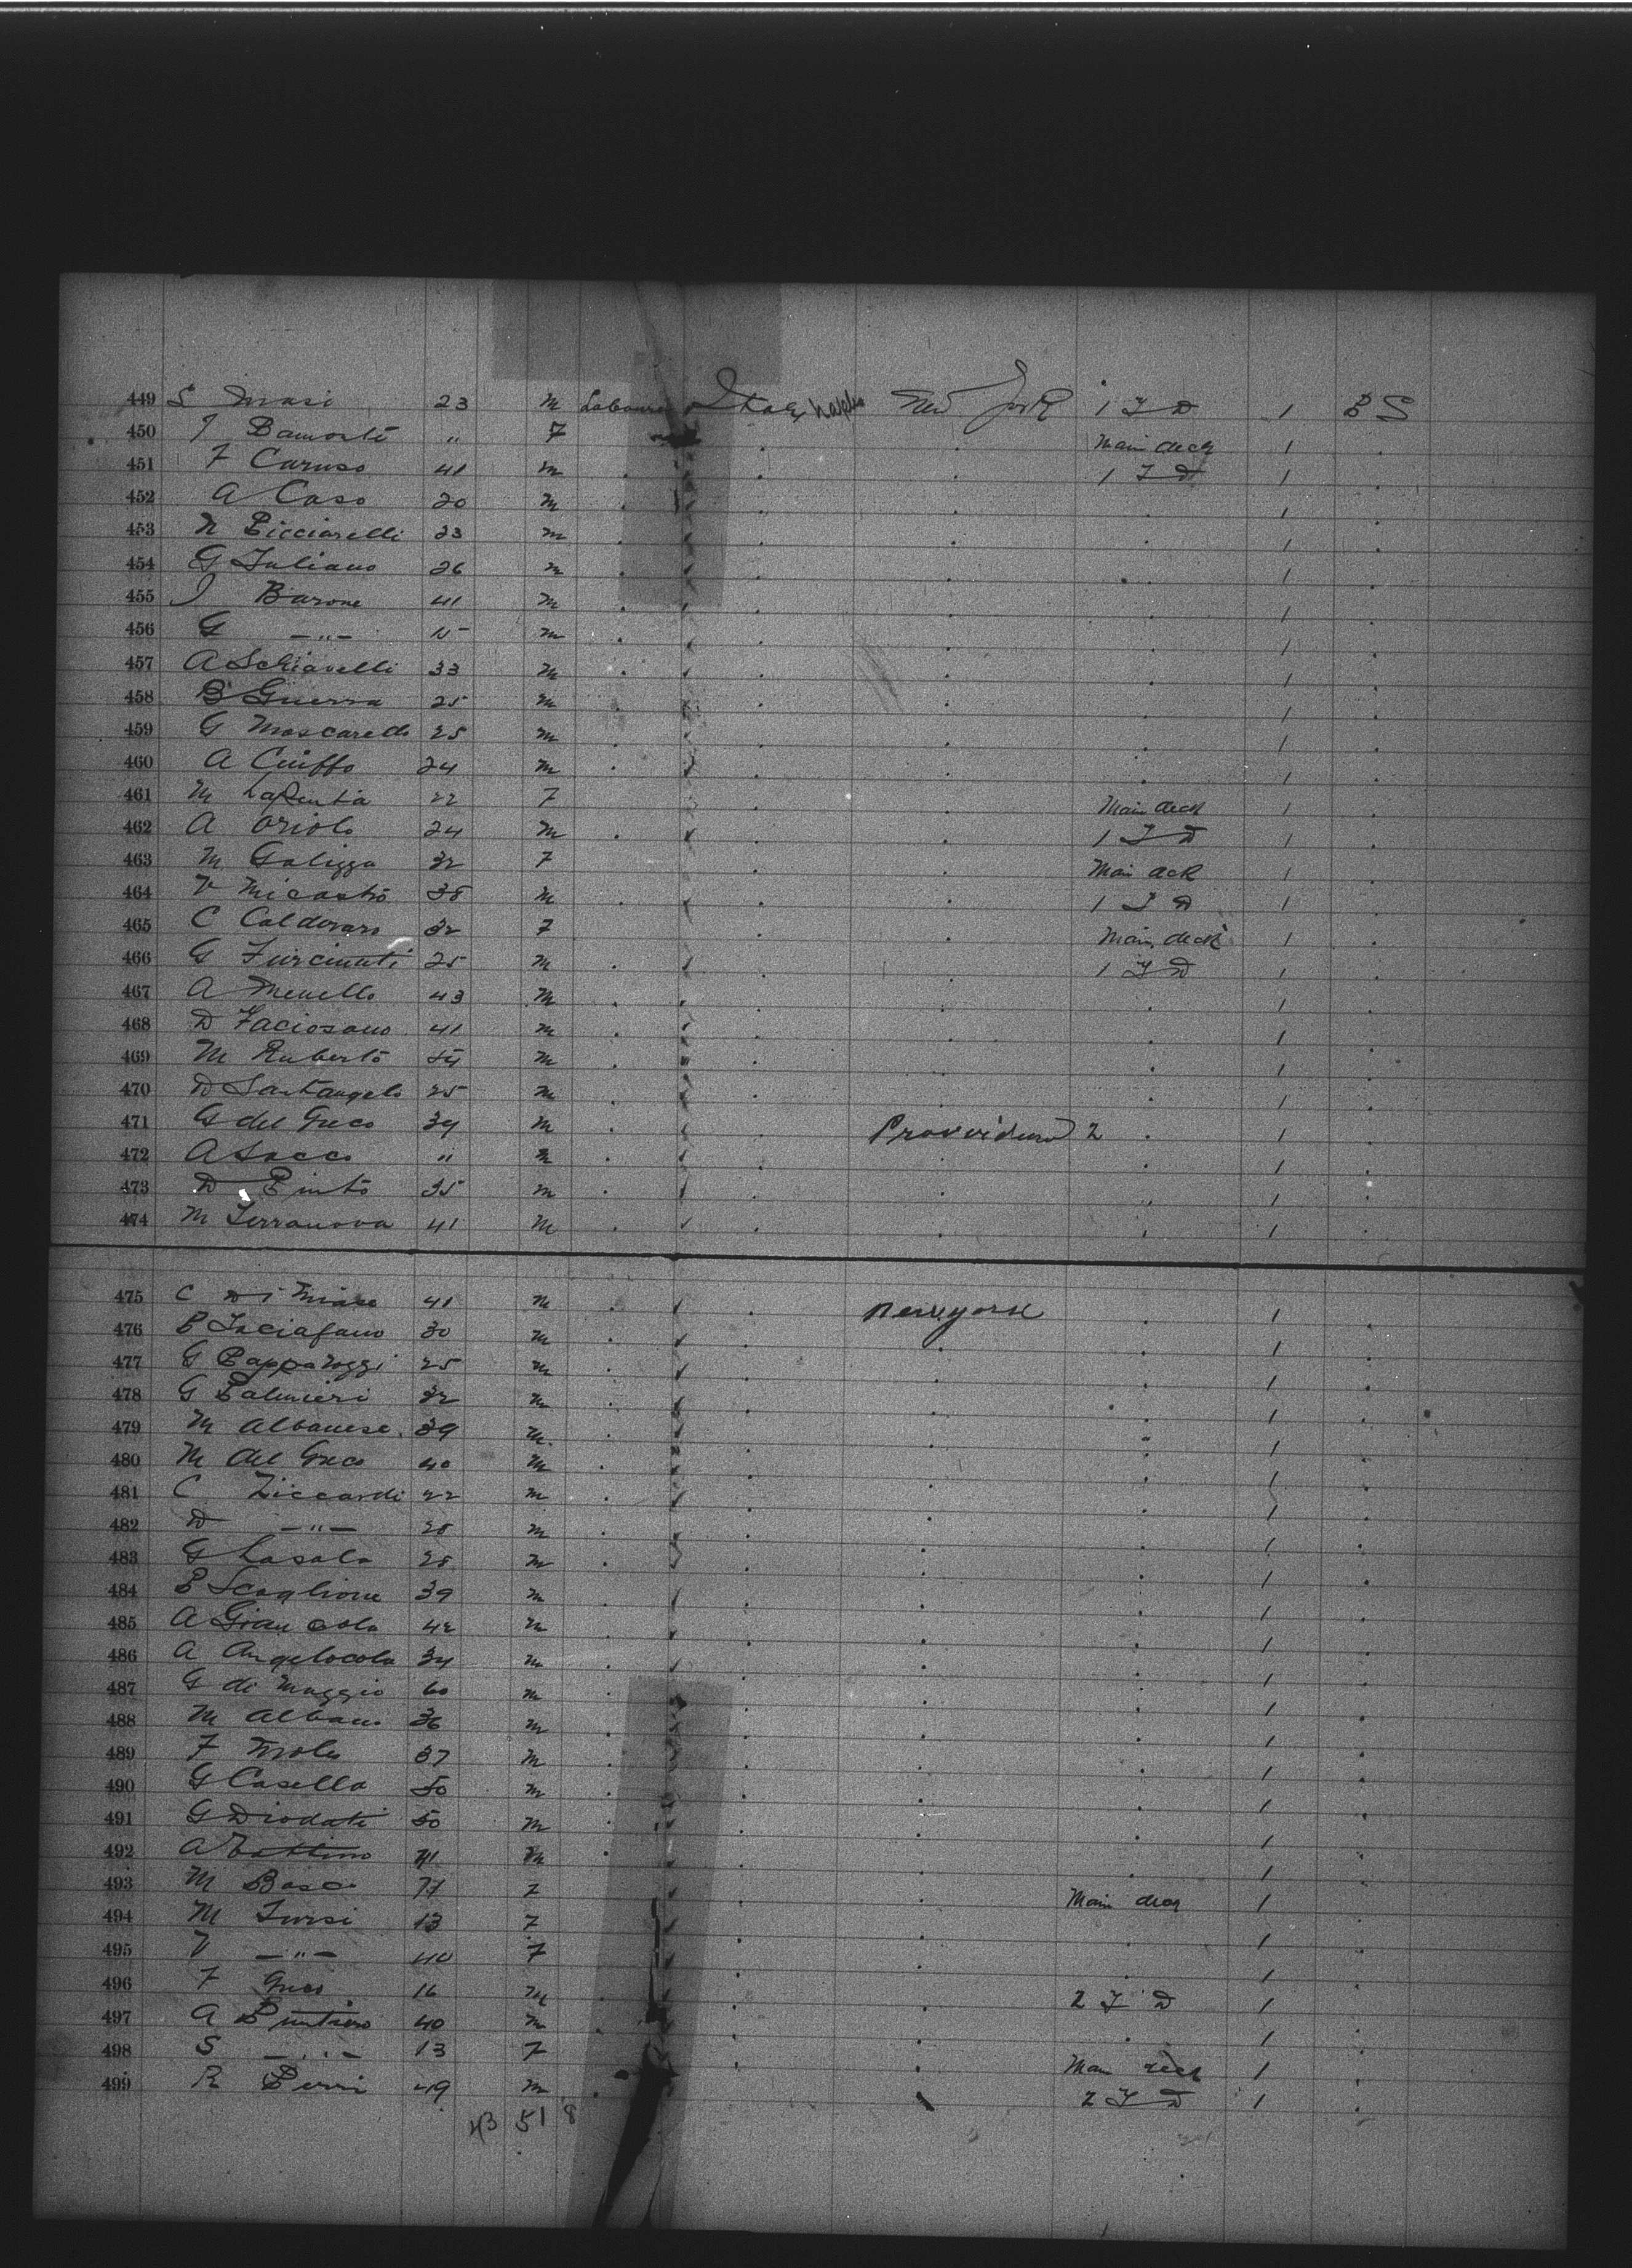 449 S Masi 23 M Labourer Italy Naples New York 1 T D 1 B S
450 " F Main deck 1
451 F Caruso 41 m 1 T D 1
452 A Caso 20 m 1
453 N Picciarelli 23 m 1
454 G Iuliano 26 m 1
455 Barone 41 m 1
456 G —"— m 1
457 A Schiavelli 33 m 1
458 B Guerra 25 m 1
459 G Moscarello 25 m 1
460 A Ciuffo 24 m 1
461 M 22 F Main deck 1
462 A Oriolo 24 m 1 T D 1
463 M Galizza 32 F Main deck 1
464 V Nicastro 38 m 1 T D 1
465 C Calderaro 32 F Main deck 1
466 G 25 m 1 T D 1
467 A Menello 43 m 1
468 D 41 m 1
469 M Ruberto 54 m 1
470 D Santangelo 25 m 1
471 G del Greco 39 m Providence 2 1
472 A Sacco " m 1
473 D Pinto 35 m 1
474 M Terranova 41 m 1
475 C Di 41 m New york 1
476 P 30 m 1
477 G Papparozzi 25 m 1
478 G Palmieri 32 m 1
479 M Albanese 39 m 1
480 M del Greco 40 m 1
481 C Ziccardi 22 m 1
482 D —"— 28 m 1
483 G Lasala 28 m 1
484 P Scaglione 39 m 1
485 A Gian cola 42 m 1
486 A Angelocola 34 m 1
487 G di Maggio 60 m 1
488 M Albano 36 m 1
489 F 37 m 1
490 G Casella 50 m 1
491 G Diodati 50 m 1
492 A 41 m 1
493 M F Main deck 1
494 M Tursi 13 F 1
495 V —"— 40 F 1
496 F Greco 16 m 2 T D 1
497 A 40 m 1
498 S —"— 13 F Main deck 1
499 R Perri 49 m 2 T D 1
43 51 8